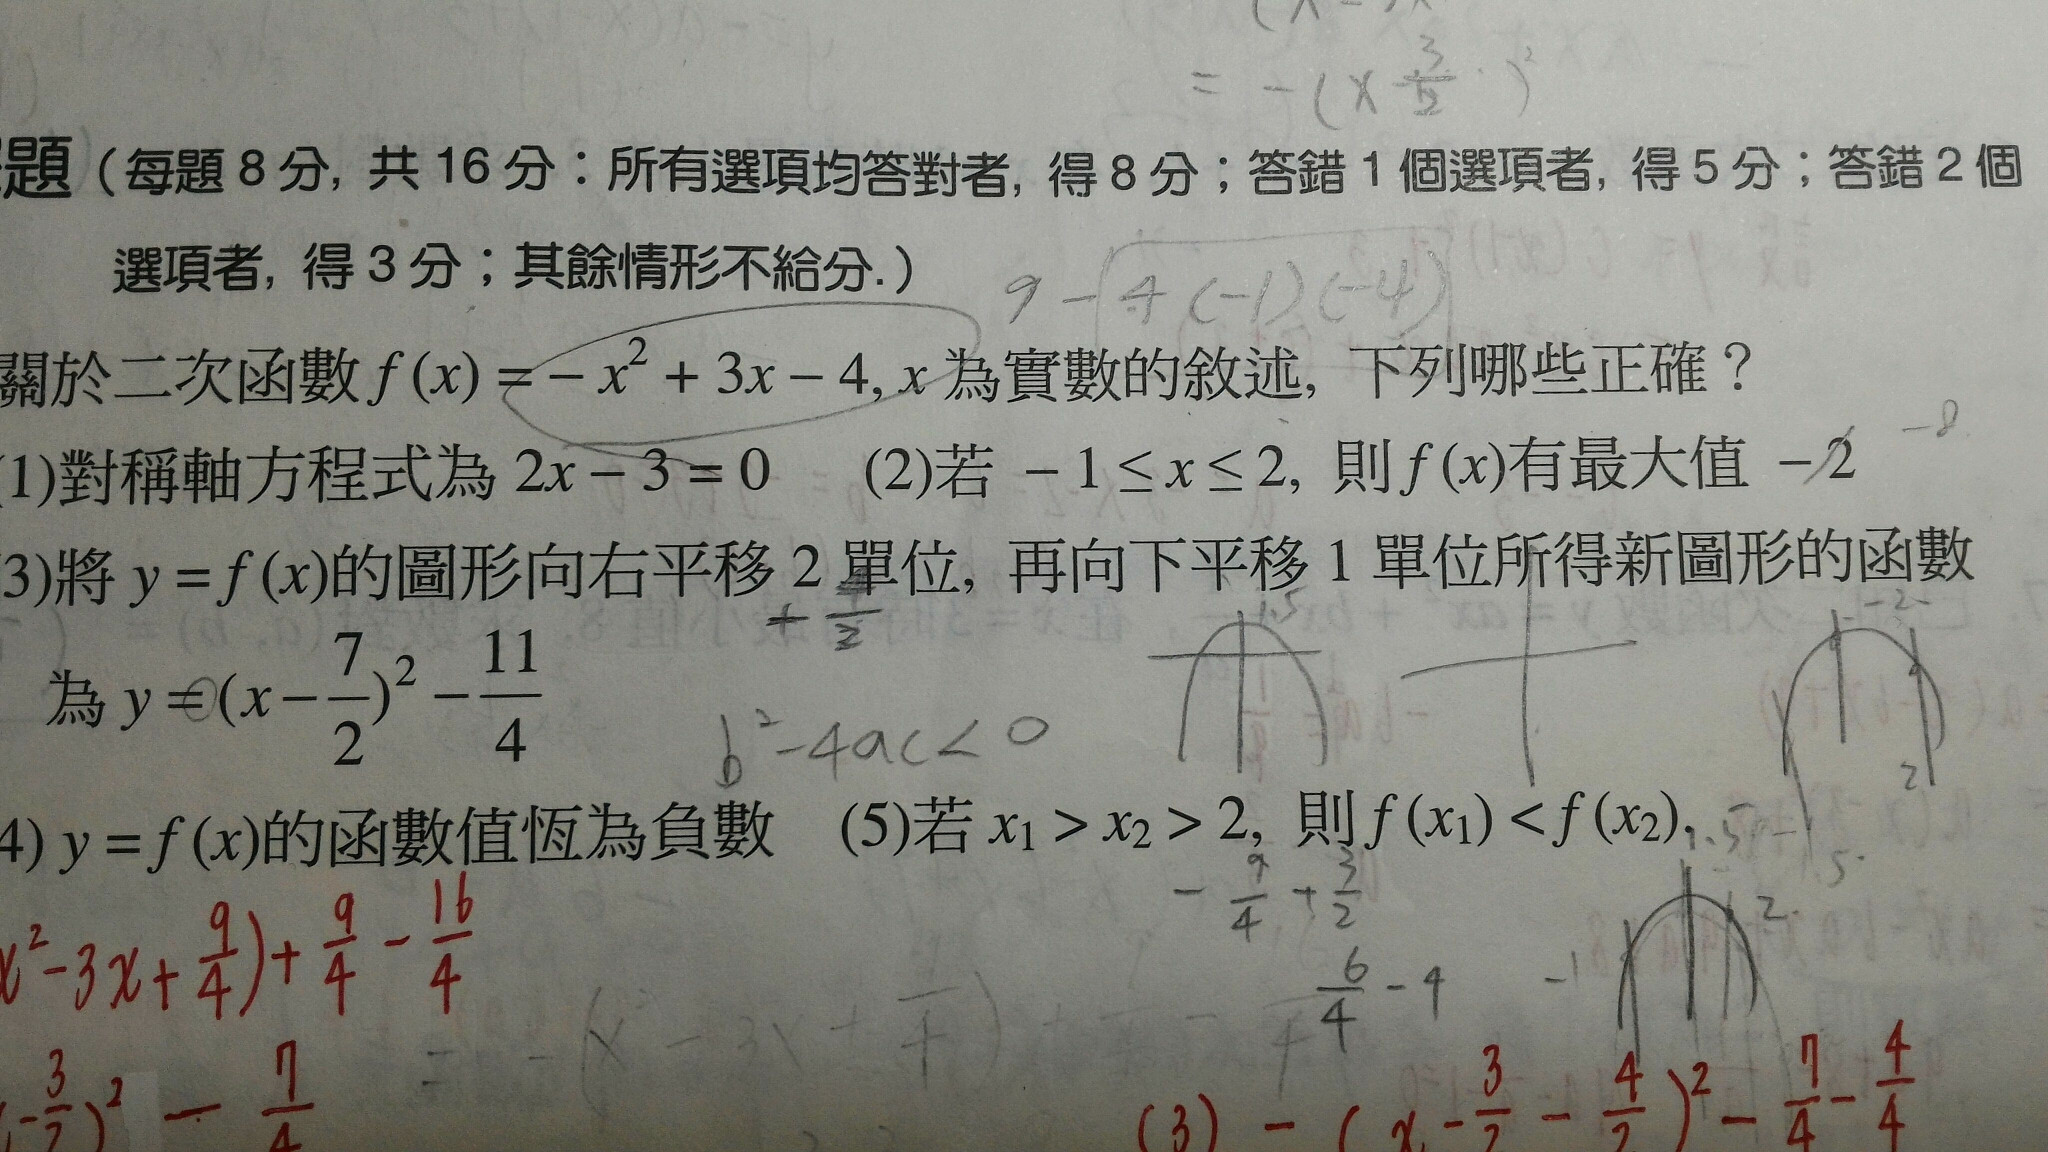 = -(x - 3/2)²
題(每題 8 分, 共 16 分:所有選項均答對者, 得 8 分;答錯 1 個選項者, 得 5 分;答錯 2 個
選項者, 得 3 分;其餘情形不給分.)
9 - 4(-1)(-4)
關於二次函數 f(x) = -x² + 3x - 4, x 為實數的敘述, 下列哪些正確?
(1)對稱軸方程式為 2x - 3 = 0 (2)若 -1 ≤ x ≤ 2, 則 f(x)有最大值 -2 -8
(3)將 y = f(x)的圖形向右平移 2 單位, 再向下平移 1 單位所得新圖形的函數
+ 4/2 1.5 -2
為 y = (x - 7/2)² - 11/4
b² - 4ac < 0 2
4) y = f(x)的函數值恆為負數 (5)若 x₁ > x₂ > 2, 則 f(x₁) < f(x₂).
1.5
- 9/4 + 3/2
x² - 3x + 9/4) + 9/4 - 16/4
6/4 - 4 -1 2
= -(x² - 3x +
- 3/2)² - 7/4
(3) -(x - 3/2 - 4/2)² - 7/4 - 4/4